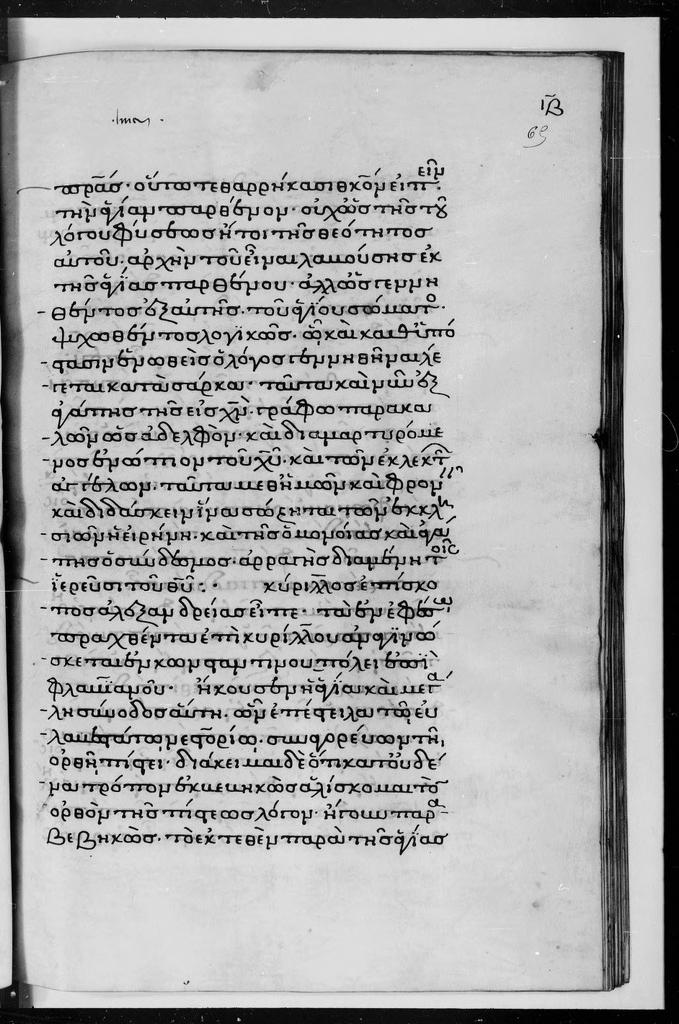 ιβ
69
πρασ· οὕτω τεθαρρήκασι θκον εἰπεῖν
τὴν ἁγίαν παρθένον· οὐχ ὡς τῆς τοῦ
λόγου φύσεως ἤτοι τῆς θεότητος
αὐτοῦ· ἀρχὴν τοῦ εἶναι λαχούσης ἐκ
τῆς ἁγίας παρθένου· ἀλλ' ὡς γεννη
θέντος ἐξ αὐτῆς· τοῦ ἁγίου σώματος
ψυχωθέντος λογικῶς· ᾧ καὶ καθ' ὑπό
στασιν ἑνωθεὶς ὁ λόγος γεννηθῆναι λέ
γεται κατὰ σάρκα· ταῦτα καὶ νῦν ἐξ
ἀγάπης τῆς εἰς χν γράφω παρακα
λῶν ὡς ἀδελφὸν· καὶ διαμαρτυρόμε
νος ἐνώπιον τοῦ χυ· καὶ τῶν ἐκλεκτῶν
ἀγγέλων· ταῦτα μεθ' ἡμῶν καὶ φρονεῖν
καὶ διδάσκειν ἵνα σώζηται τῶν ἐκκλη
σιῶν ἡ εἰρήνη· καὶ τῆς ὁμονοίας καὶ ἀγά
πης ὁ σύνδεσμος· ἀρραγὴς διαμένη τοῖς
ἱερεῦσι τοῦ θυ: · κύριλλος ἐπίσκο
πος ἀλεξανδρείας εἶπε· τὰ ἐν ἐφέσω
πραχθέντα ἐπὶ κυρίλλου ἀναγινώ
σκεται ἐν κωνσταντίνου πόλει ἐπὶ
φλαυϊανοῦ· ἤκουσεν ἡ ἁγία καὶ μεγά
λη σύνοδος αὕτη· ὧν ἐπέστειλα τῷ εὐ
λαβεστάτω νεστορίω· συνηγορεύων τῆ
ὀρθῆ πίστει· διάκειμαι δὲ ὅτι κατ' οὐδέ
να τρόπον ἐκμεμηκὼς ἁλίσκομαι τὸν
ὀρθὸν τῆς πίστεως λόγον· ἤγουν παρα
βεβηκὼς· τὸ ἐκτεθὲν παρὰ τῆς ἁγίας